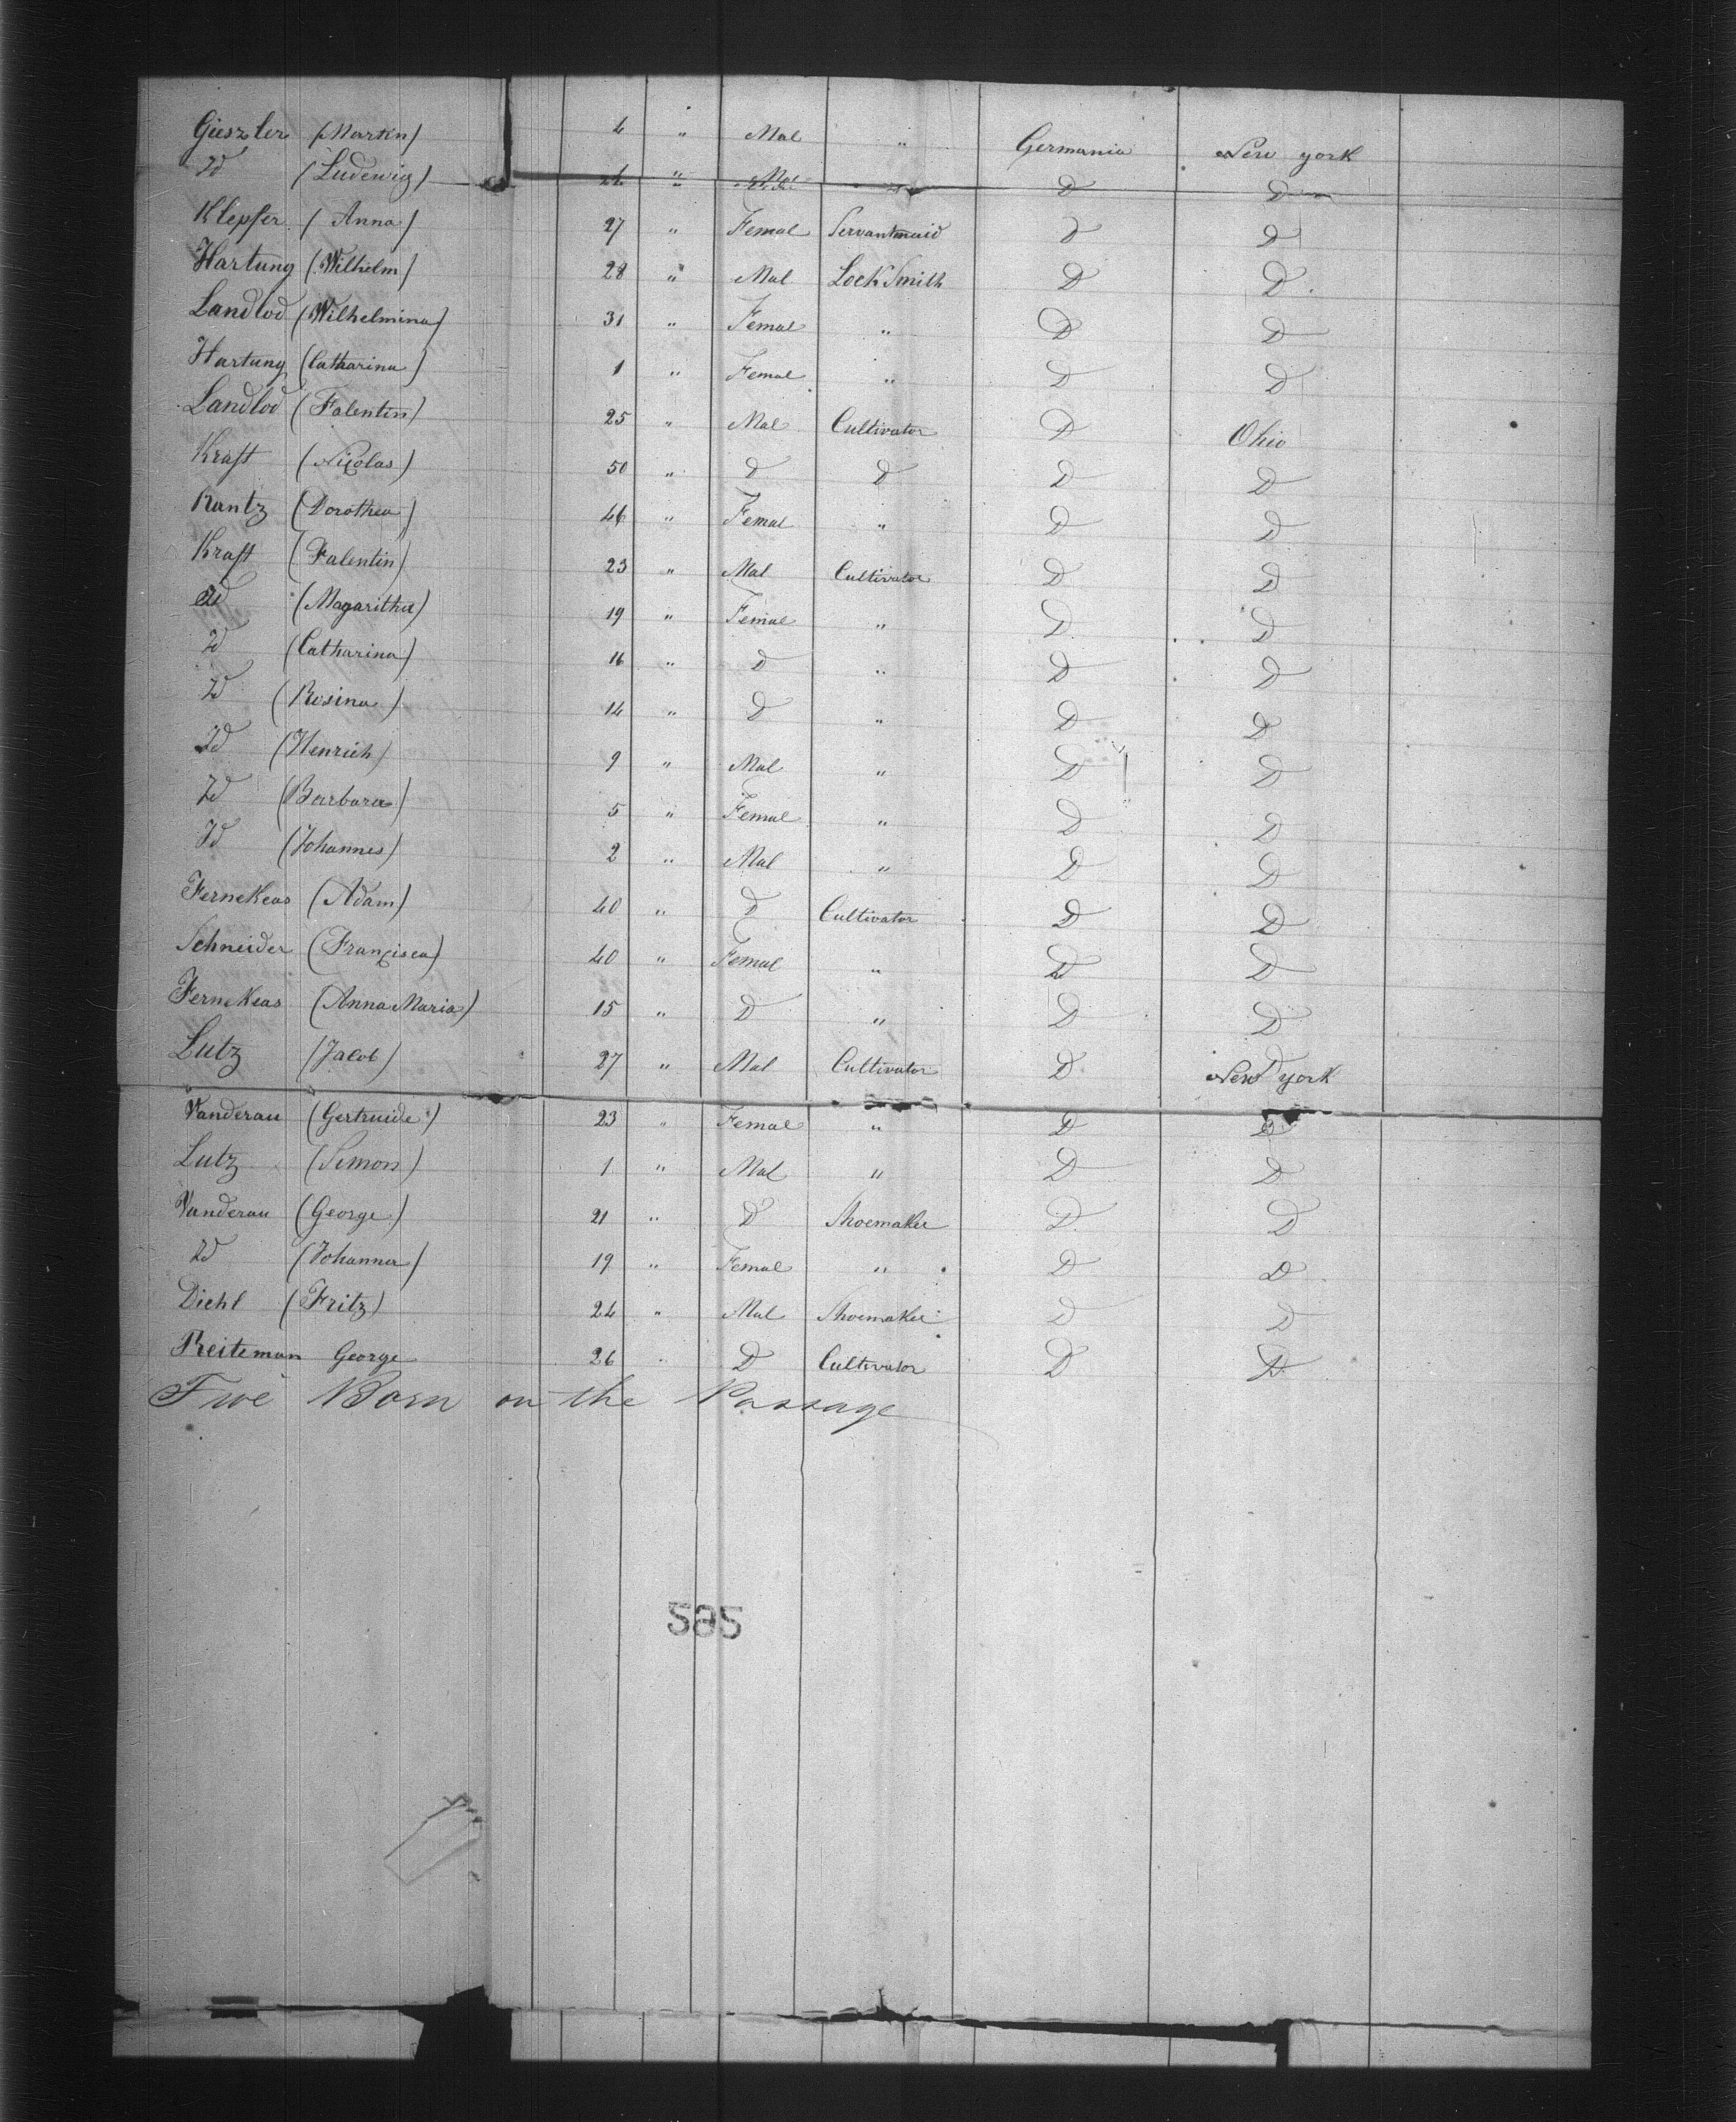 Gieszler (Martin) 4 " Mal " Germania New york
Id (Ludewig) " Mal D D
Klepfer (Anna) 27 " Femal Servantmaid D D
Hartung (Wilhelm) 28 " Mal Lock Smith D D
Landlod (Wilhelmina) 31 " Femal " D D
Hartung (Catharina) 1 " Femal " D D
Landlod (Falentin) 25 " Mal Cultivator D Ohio
Kraft (Nicolas) 50 " D D D D
Kantz (Dorothea) 46 " Femal " D D
Kraft (Falentin) 23 " Mal Cultivator D D
Id (Magaritha) 19 " Femal " D D
Id (Catharina) 16 " D " D D
Id (Rosina) 14 " D " D D
Id (Henrich) 9 " Mal " D D
Id (Barbara) 5 " Femal " D D
Id (Johannes) 2 " Mal " D D
Fernekeas (Adam) 40 " D Cultivator D D
Schneider (Francisca) 40 " Femal " D D
Fernekeas (Anna Maria) 15 " D " D D
Lutz (Jacob) 27 " Mal Cultivator D New york
Vanderau (Gertruide) 23 " Femal " D D
Lutz (Simon) 1 " Mal " D D
Vanderau (George) 21 " D Shoemaker D D
Id (Johanna) 19 " Femal " D D
Diehl (Fritz) 24 " Mal Shoemaker D D
Reiteman George 26 " D Cultivator D D
Born on the Passage